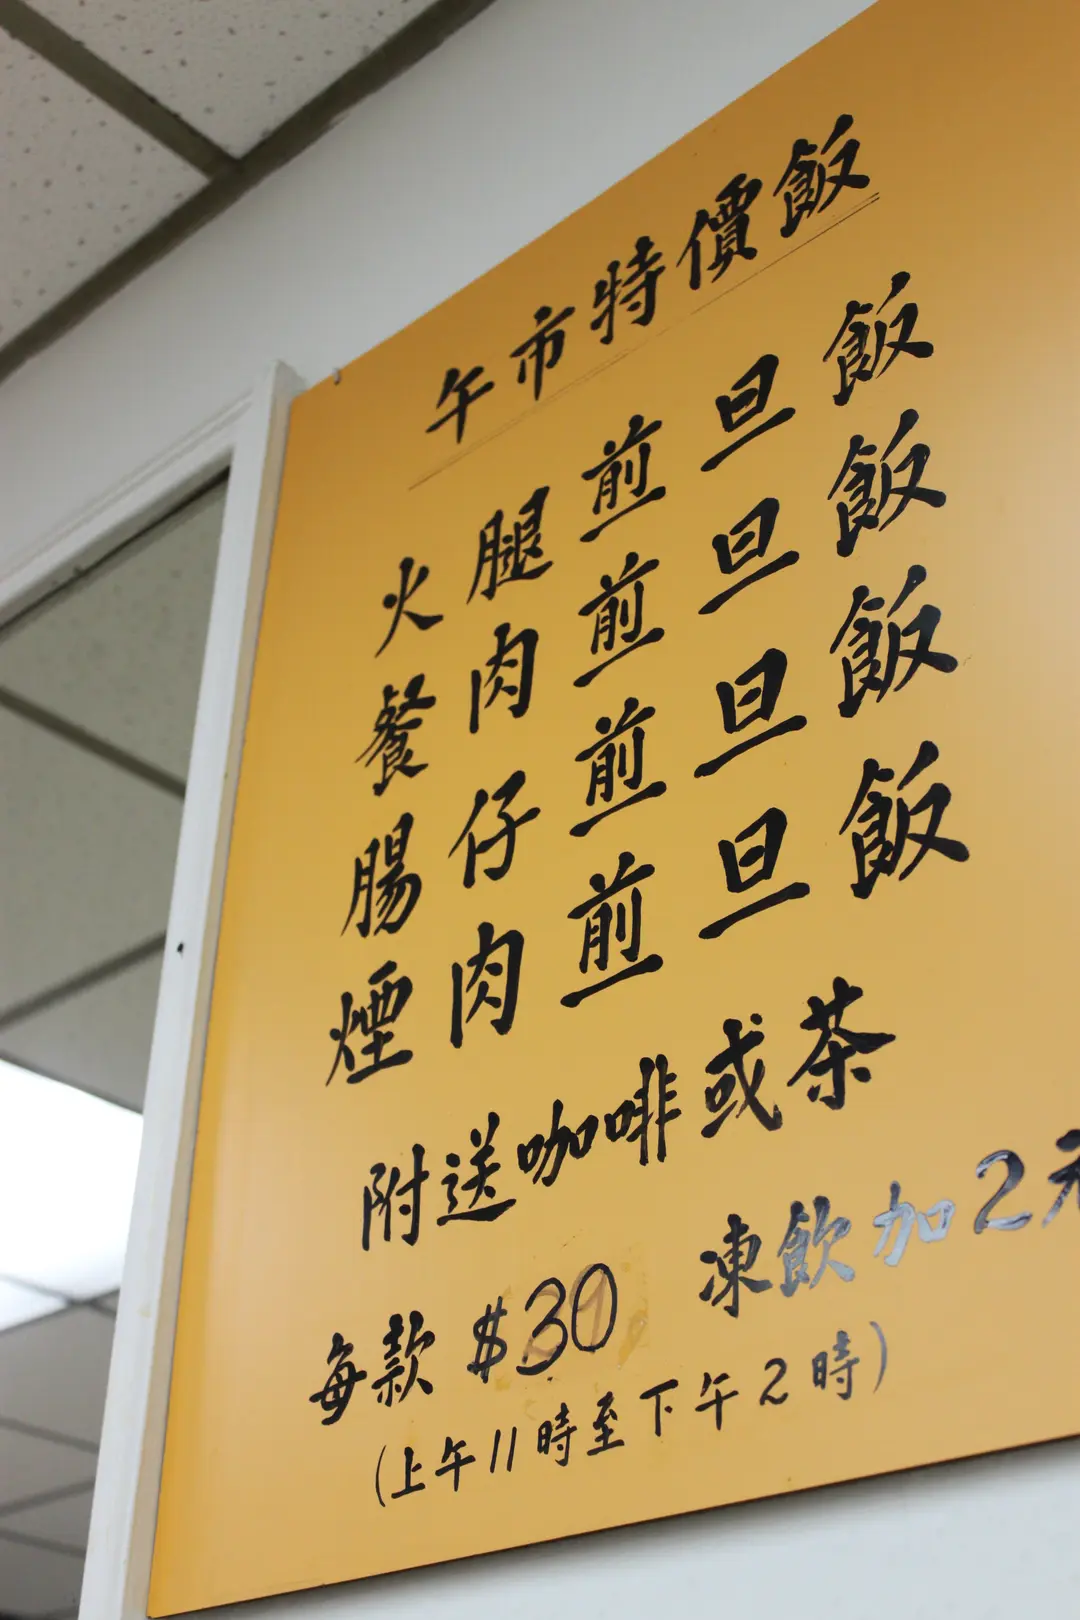 午市特價飯
火腿煎旦飯
餐肉煎旦飯
腸仔煎旦飯
煙肉煎旦飯
附送咖啡或茶
每款 $30 凍飲加2元
(上午11時至下午2時)